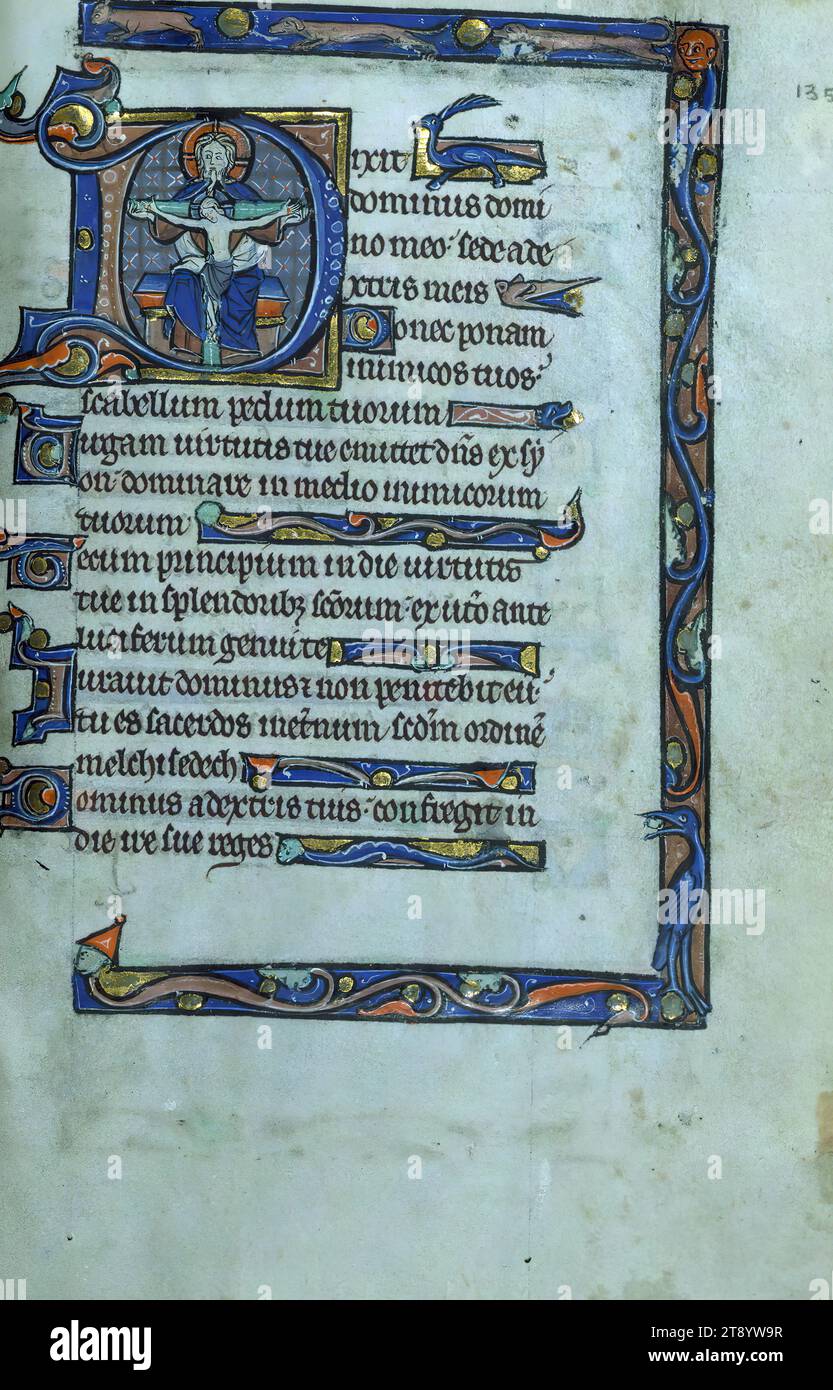 135
Dixit
dominus domi
no meo· sede a de
xtris meis
Donec ponam
inimicos tuos·
scabellum pedum tuorum
Uirgam uirtutis tue emittet dn̄s ex sy
on· dominare in medio inimicorum
tuorum
Tecum principium in die uirtutis
tue in splendoribꝫ sc̄orum· ex ut̄o ante
luciferum genui te
Iurauit dominus ⁊ non penitebit eu̅·
tu es sacerdos inet̄num sc̄dm ordinē
melchisedech
Dominus a dextris tuis· confregit in
die ire sue reges
alamy
Image ID: 2T81YW9R
www.alamy.com